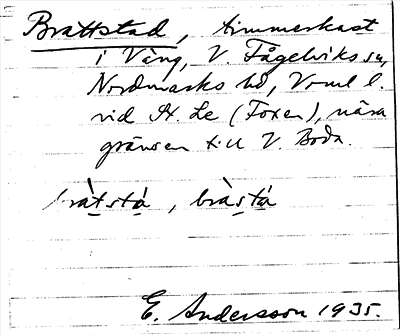 Brattstad, timmerkast
i Väng, V. Fågelviks sn,
Nordmarks hd, Vrml l.
vid St. Le (Foxen), nära
gränsen till V. Boda.
bràtstá, bràstá
E. Andersson 1935.